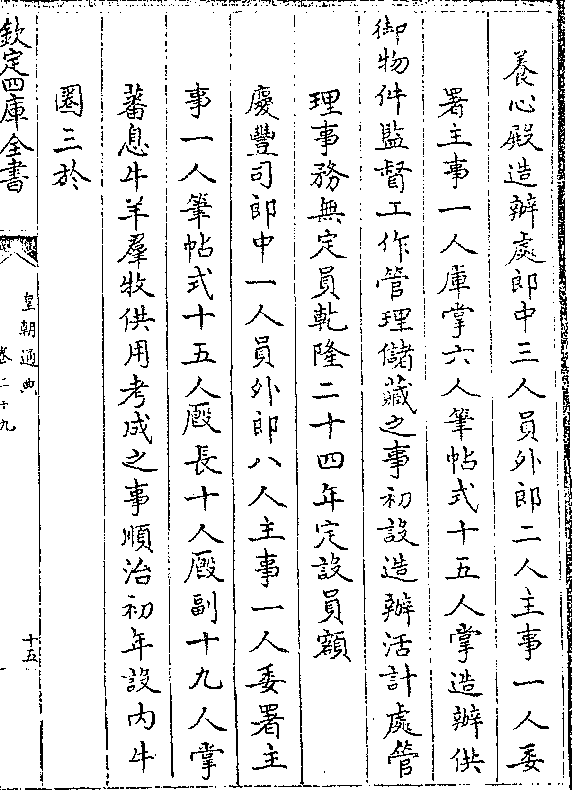 養心殿造辦處郎中三人員外郎二人主事一人委
署主事一人庫掌六人筆帖式十五人掌造辦供
御物件監督工作管理儲藏之事初設造辦活計處管
理事務無定員乾隆二十四年定設員額
慶豐司郎中一人員外郎八人主事一人委署主
事一人筆帖式十五人廐長十人廐副十九人掌
蕃息牛羊羣牧供用考成之事順治初年設內牛
圈三於
欽定四庫全書
皇朝通典
卷二十九
十五